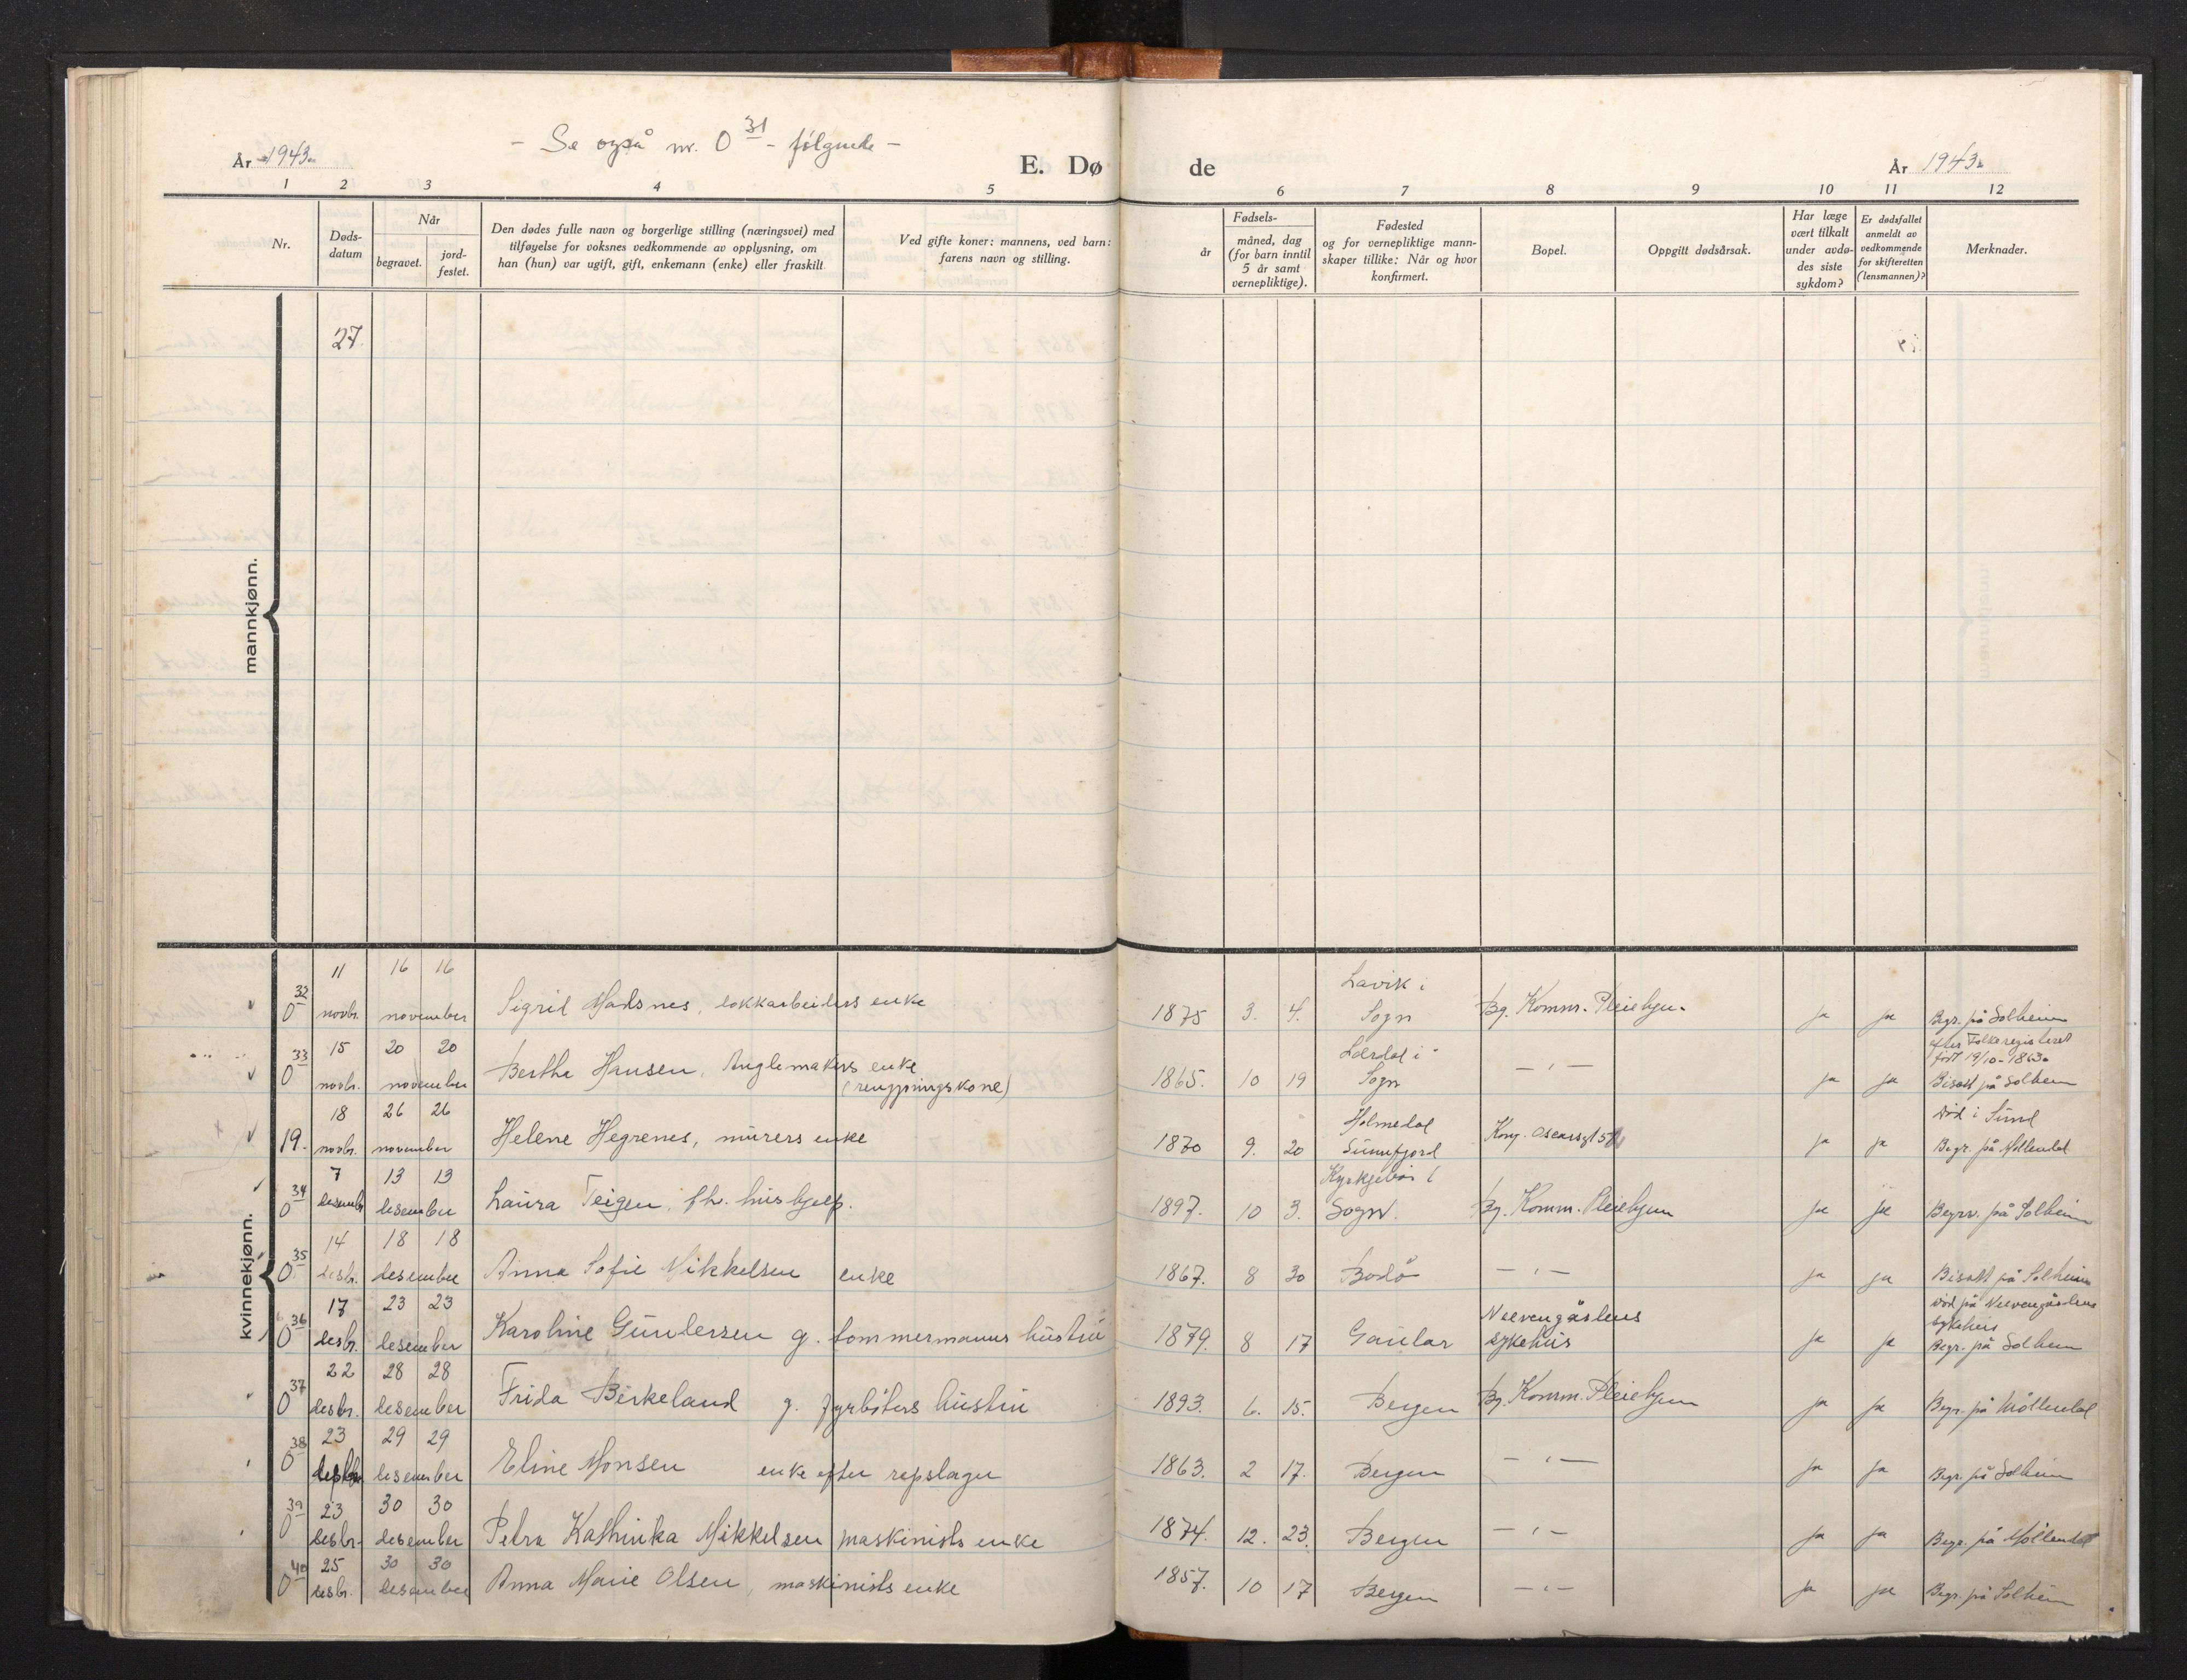 - Se også nr. 0 31 - følgende -
År 1943.
E. Dø de
År 1943.
1 2 3 4 5 6 7 8 9 10 11 12
Nr.
Døds-
datum
Når
begravet.
jord-
festet.
Den dødes fulle navn og borgerlige stilling (næringsvei) med
tilføyelse for voksnes vedkommende av opplysning, om
han (hun) var ugift, gift, enkemann (enke) eller fraskilt
Ved gifte koner: mannens, ved barn:
farens navn og stilling.
Fødsels-
år
måned, dag
(for barn inntil
5 år samt
vernepliktige).
Fødested
og for vernepliktige mann-
skaper tillike: Når og hvor
konfirmert.
Bopel.
Oppgitt dødsårsak.
Har læge
vært tilkalt
under avdø-
des siste
sykdom?
Er dødsfallet
anmeldt av
vedkommende
for skifteretten
(lensmannen)?
Merknader.
mannkjønn.
27
kvinnekjønn.
11 16 16 Lavik i
0 32 novbr. november Sigrid Madsnes, lokkarbeiders enke 1875 3. 4. Sogn Bg. Komm. Pleiehjem. ja ja Begr. på Solheim
15 20 20 Lærdal i efter Folkeregisteret
født 19/10-1863.
0 33 novbr. november Berthe Hansen, Anglemakers enke 1865. 10 19 Sogn - " - ja ja Bisatt på Solheim
(rengjøringskone)
18 26 26 Holmedal død i Sund
19. novbr. november Helene Hegrenes, murers enke 1870 9. 20 Sunnfjord Kong. Oscarsgt 5 ja ja Begr. på Møllendal
7 13 13 Kyrkjebø i
0 34 desembr desember Laura Teigen, fh. hushjelp. 1897. 10 3. Sogn. Bg. Komm. Pleiehjem ja ja Begrv. på Solheim
14 18 18
0 35 desbr. desember Anna Sofie Mikkelsen enke 1867. 8 30 Bodø - " - ja ja Bisatt på Solheim
17 23 23 Neevengårdens død på Neevengårdens
sykehus
0 36 desbr. desember Karoline Gundersen g. tømmermanns hustru 1879. 8 17 Gaular sykehus ja ja Begr. på Solheim
22 28 28
0 37 desbr. desember Frida Birkeland g. fyrbøters hustru 1893. 6. 15. Bergen Bg. Komm. Pleiehjem ja ja Begr. på Møllendal
23 29 29
0 38 desbr desember Eline Monsen enke efter repslager 1863. 2 17. Bergen - " - ja ja Begr. på Solheim
23 30 30
0 39 desbr. desember Petra Kathinka Mikkelsen maskinists enke 1874. 12. 23. Bergen - " - ja ja Begr. på Møllendal
25 30 30
0 40 desbr. desember Anna Marie Olsen, maskinists enke 1857. 10 17 Bergen - " - ja ja Begr. på Solheim